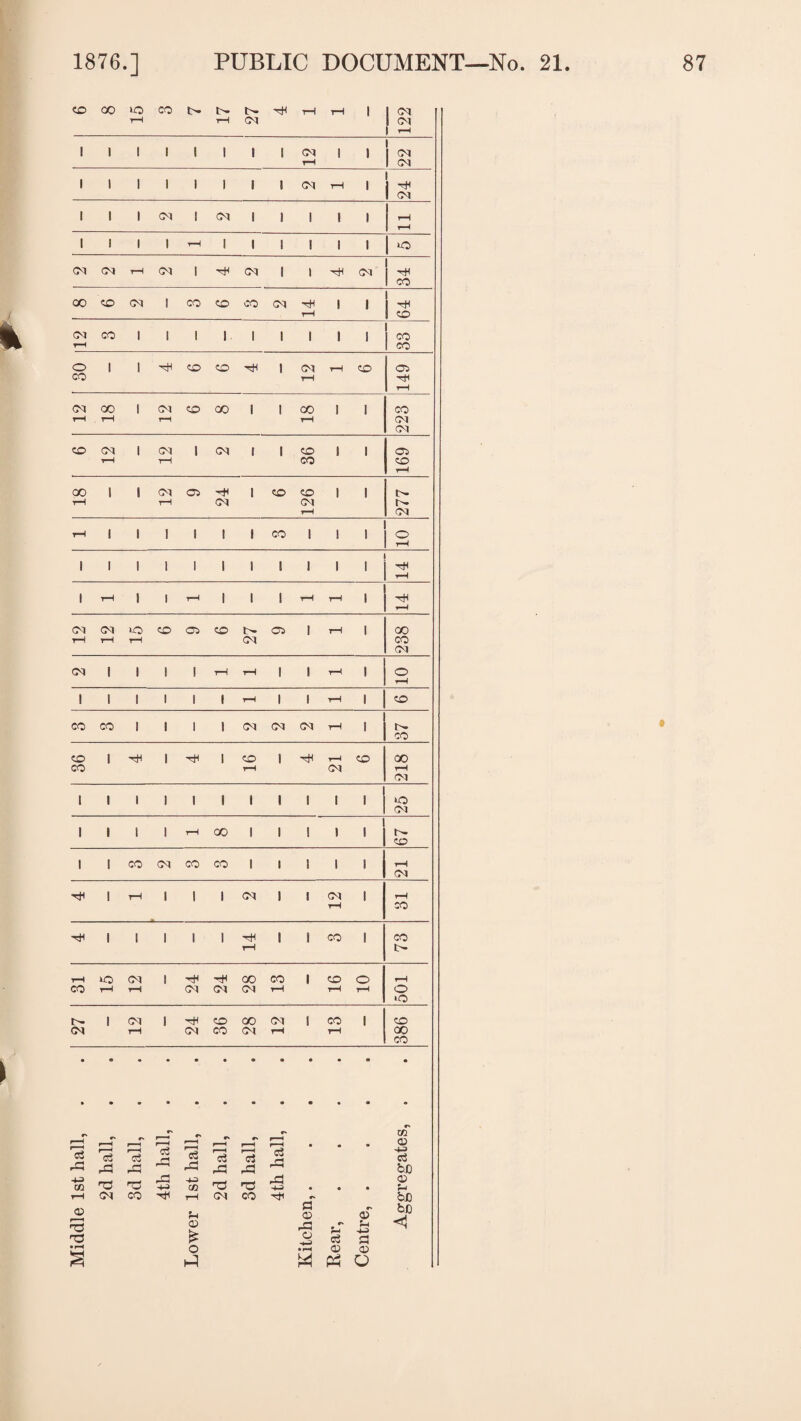 1876.] PUBLIC DOCUMENT—No. 21. 87
Middle 1st hall, . . 27 31 4 4 - - - 36 3 - 2 12 - - 1 18 6 12 30 12 8 2 - - - - 6
2d hall, . . - 15 - - - - - - 3 - - 12 1 - - - 12 18 - 3 6 2 - - - - 8
3d hall, . . 12 12 - 1 3 - - 4 - - - 15 - - - - - - - - 2 1 - - - - 15
4th hall, . . - - - - 2 - - - - - - 6 - - - 12 12 12 4 - - 2 - 2 - - 3
Lower 1st hall, . . 24 24 - - 3 1 - 4 - - - 9 1 - - 9 - 6 6 - 3 - 1 - - - 7
2d hall, . . 36 24 - - 3 8 - - - - 1 6 - - - 24 2 8 6 - 6 4 - 2 - - 17
3d hall, . . 28 28 14 2 - - - 16 2 1 1 27 - - - - - - 4 - 3 2 - - - - 27
4th hall, . . 12 13 - - - - - - 2 - - 9 - - 3 6 - - - - 2 - - - - - 4
Kitchen, . . . . - - - - - - - 4 2 - - - 1 - - 126 36 18 12 - 14 - - - 2 12 1
Rear, . . . . 13 16 3 12 - - - 21 1 1 1 1 1 - - - - - 1 - - 4 - - 1 - 1
Centre, . . . . - 10 - - - - - 6 - - - - - - - - - - 6 - - 2 - - - - -
Aggregates, . . 386 501 73 31 21 67 25 218 37 6 10 238 14 14 10 277 169 223 149 33 64 34 5 11 24 22 122